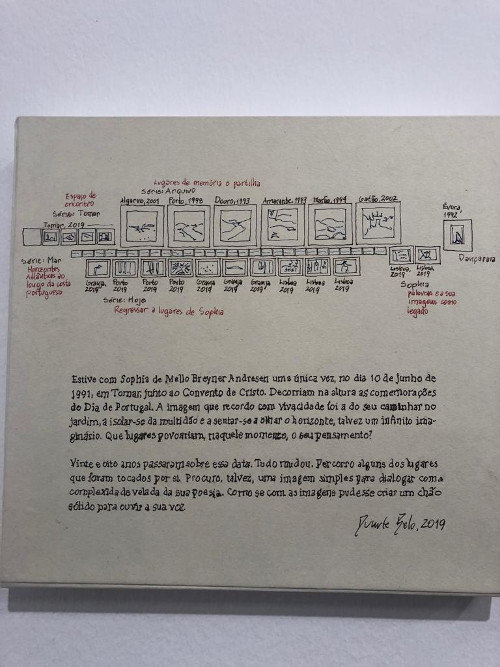 Lugares de memória e partilha
Série: Arquivo
Espaço de encontro
Série: Tomar
Tomar, 2019
Algarve, 2001 Porto, 1998 Douro, 1993 Amarante, 1993 Marão, 1994 Gatão, 2002
Évora, 1992
Danparara
Série: Mar
Horizontes
Atlânticos ao
longo da costa
portuguesa
Granja, 2019 Porto 2019 Porto 2019 Porto 2019 Granja 2019 Granja 2019 Granja 2019 Lisboa 2019 Lisboa 2019 Lisboa 2019
Lisboa, 2019 Lisboa, 2019
Série: Hoje
Regressar a lugares de Sophia
Sophia
palavras e a sua
imagem como
legado
Estive com Sophia de Mello Breyner Andresen uma única vez, no dia 10 de junho de
1991, em Tomar, junto ao Convento de Cristo. Decorriam na altura as comemorações
do Dia de Portugal. A imagem que recordo com vivacidade foi a do seu caminhar no
jardim, a isolar-se da multidão e a sentar-se a olhar o horizonte, talvez um infinito ima-
ginário. Que lugares povoariam, naquele momento, o seu pensamento?
Vinte e oito anos passaram sobre essa data. Tudo mudou. Percorro alguns dos lugares
que foram tocados por si. Procuro, talvez, uma imagem simples para dialogar com a
complexidade velada da sua poesia. Como se com as imagens pudesse criar um chão
sólido para ouvir a sua voz
Duarte Belo, 2019